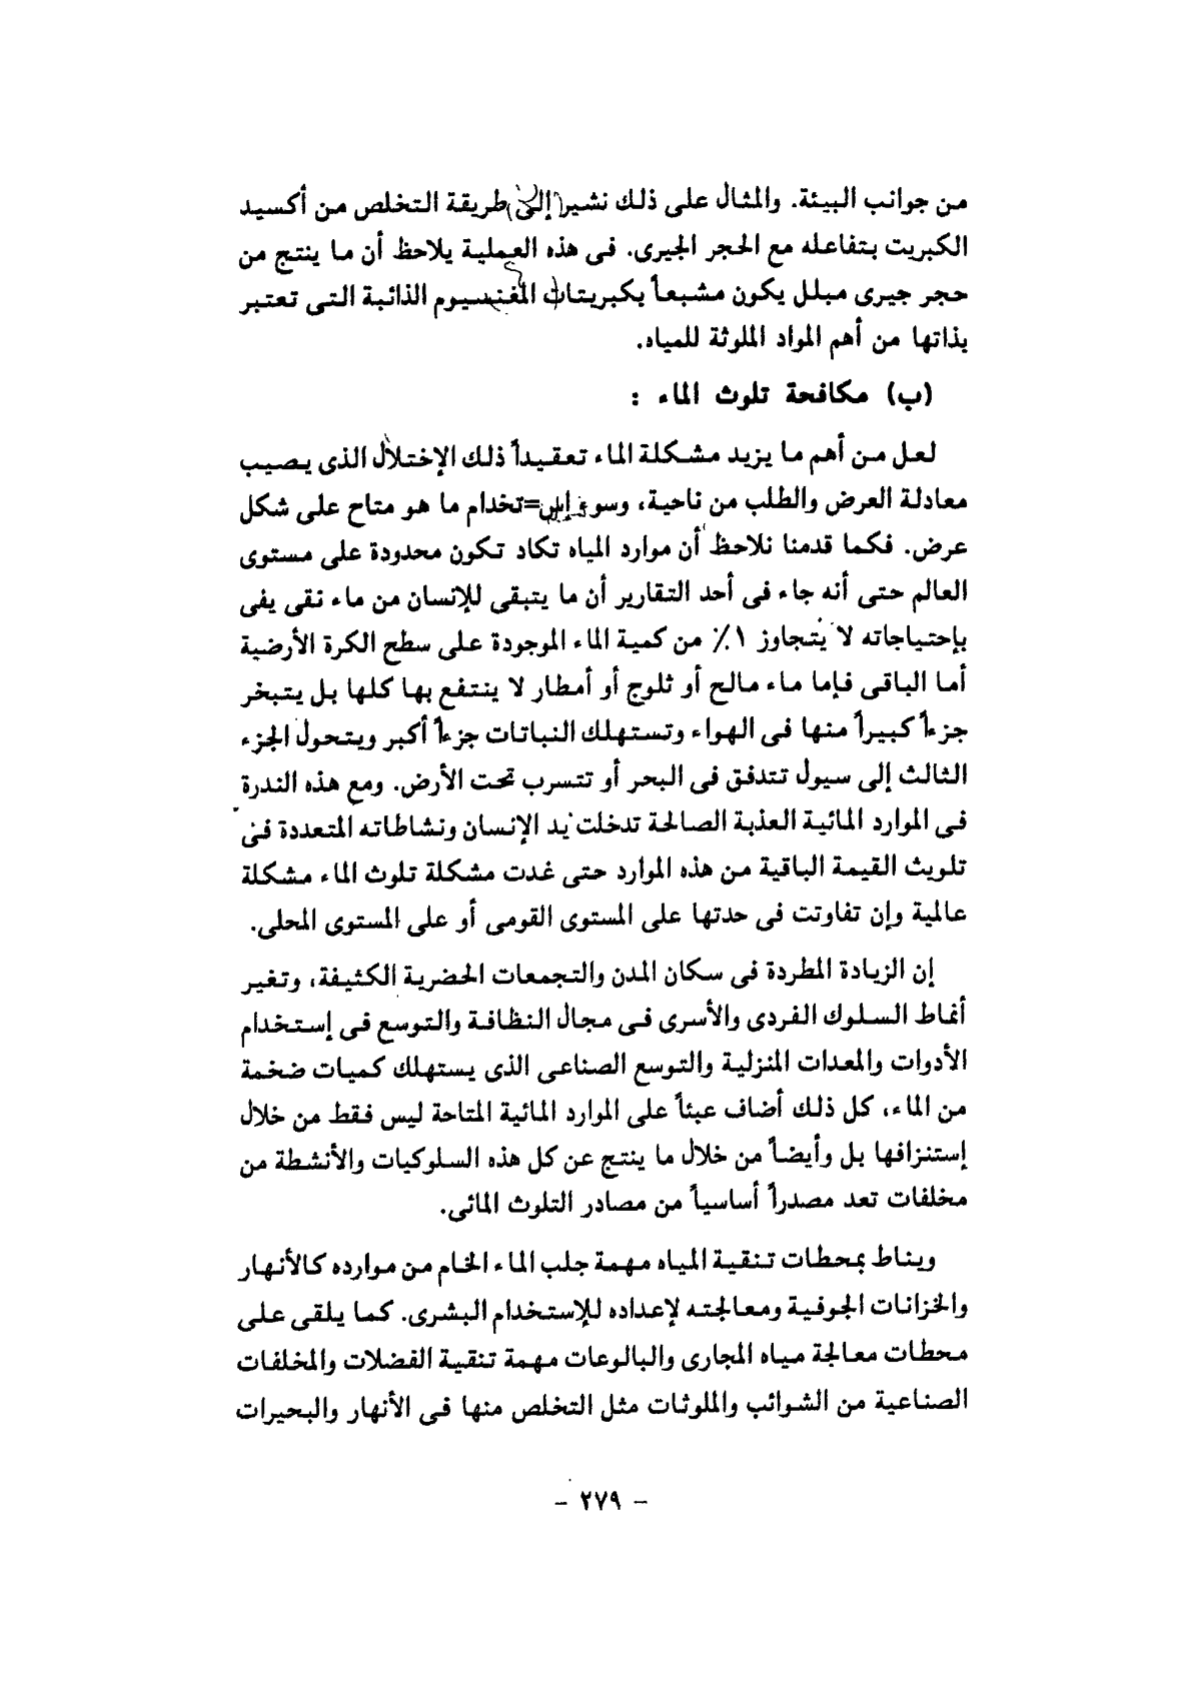 من جوانب البيئة. والمثال على ذلك نشير إلى طريقة التخلص من أكسيد
الكبريت بتفاعله مع الحجر الجيرى. فى هذه العملية يلاحظ أن ما ينتج من
حجر جيرى مبلل يكون مشبعاً بكبريتات المغنسيوم الذائبة التى تعتبر
بذاتها من أهم المواد الملوثة للمياه.
(ب) مكافحة تلوث الماء :
لعل من أهم ما يزيد مشكلة الماء تعقيداً ذلك الإختلال الذى يصيب
معادلة العرض والطلب من ناحية، وسوء إس=تخدام ما هو متاح على شكل
عرض. فكما قدمنا نلاحظ أن موارد المياه تكاد تكون محدودة على مستوى
العالم حتى أنه جاء فى أحد التقارير أن ما يتبقى للإنسان من ماء نقى يفى
بإحتياجاته لا يتجاوز ١٪ من كمية الماء الموجودة على سطح الكرة الأرضية
أما الباقى فإما ماء مالح أو ثلوج أو أمطار لا ينتفع بها كلها بل يتبخر
جزءاً كبيراً منها فى الهواء وتستهلك النباتات جزءاً أكبر ويتحول الجزء
الثالث إلى سيول تتدفق فى البحر أو تتسرب تحت الأرض. ومع هذه الندرة
فى الموارد المائية العذبة الصالحة تدخلت يد الإنسان ونشاطاته المتعددة فى
تلويث القيمة الباقية من هذه الموارد حتى غدت مشكلة تلوث الماء مشكلة
عالمية وإن تفاوتت فى حدتها على المستوى القومى أو على المستوى المحلى.
إن الزيادة المطردة فى سكان المدن والتجمعات الحضرية الكثيفة، وتغير
أنماط السلوك الفردى والأسرى فى مجال النظافة والتوسع فى إستخدام
الأدوات والمعدات المنزلية والتوسع الصناعى الذى يستهلك كميات ضخمة
من الماء، كل ذلك أضاف عبئاً على الموارد المائية المتاحة ليس فقط من خلال
إستنزافها بل وأيضاً من خلال ما ينتج عن كل هذه السلوكيات والأنشطة من
مخلفات تعد مصدراً أساسياً من مصادر التلوث المائى.
ويناط بمحطات تنقية المياه مهمة جلب الماء الخام من موارده كالأنهار
والخزانات الجوفية ومعالجته لإعداده للإستخدام البشرى. كما يلقى على
محطات معالجة مياه المجارى والبالوعات مهمة تنقية الفضلات والمخلفات
الصناعية من الشوائب والملوثات مثل التخلص منها فى الأنهار والبحيرات
- ٢٧٩ -